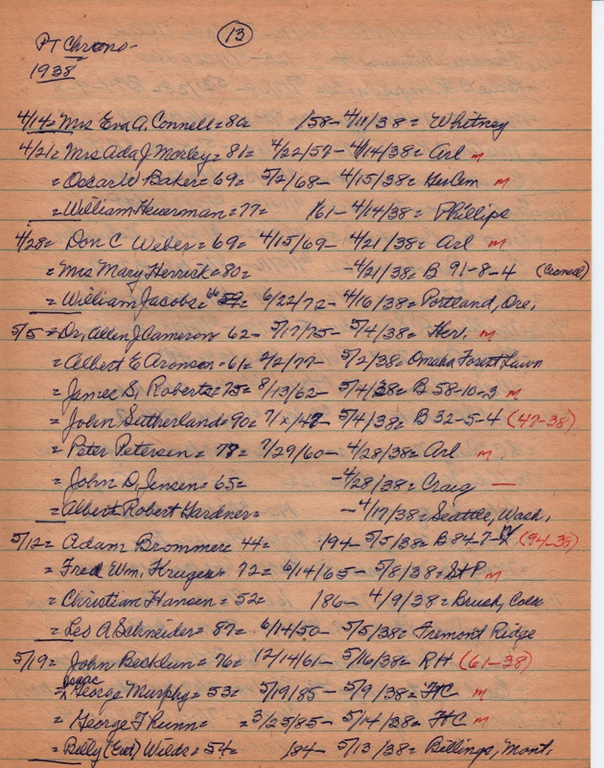 13
PT Chrono-
1938
4/14 = Mrs Eva A. Connell = 80 1/58 - 4/11/38 = Whitney
4/21 = Mrs Ada J Morley = 81 = 4/22/57 - 4/14/38 = Arl m
= Oscar W Baker = 69 = 5/2/68 - 4/15/38 = HerCem m
= William Heuerman = 77 = 1/61 - 4/14/38 = Phillips
4/28 = Don C Weber = 69 = 4/15/69 - 4/21/38 = Arl m
= Mrs Mary Herrick = 80 = - 4/21/38 = B 91-8-4
= William Jacobs = 66 6/22/72 - 4/16/38 = Portland, Ore.
5/5 = Dr. Allen J. Cameron 62 - 5/17/75 - 5/4/38 = Her. m
= Albert E Aronson - 61 = 2/2/77 - 5/2/38 = Omaha Forest Lawn
= James S. Roberts = 75 = 8/13/62 - 5/4/38 = B 58-10-3 m
= John Sutherland = 90 = 7/x/47 - 5/4/38 = B 32-5-4 (47-38)
= Peter Petersen = 78 = 7/29/60 - 4/28/38 = Arl m
= John D. Jensen = 65 = - 4/28/38 = Craig —
= Albert Robert Hardner = - 4/17/38 = Seattle, Wash.
5/12 = Adam Brommer = 44 = 194 - 5/5/38 = B 84-7- (94-38)
= Fred Wm. Kruger = 72 = 6/14/65 - 5/8/38 = StP m
= Christian Hansen = 52 = 186 - 4/9/38 = Brush, Colo
= Leo A Schneider = 87 = 6/14/50 - 5/5/38 = Fremont Ridge
5/19 = John Becklun = 76 = 12/14/61 - 5/16/38 = RH (61-38)
Isaac
= George Murphy = 53 = 5/19/85 - 5/9/38 = FHC m
= George F Runn = = 3/25/85 - 5/14/38 = FHC m
= Billy (Ewd) Wilds = 54 = 184 - 5/13/38 = Billings, Mont.